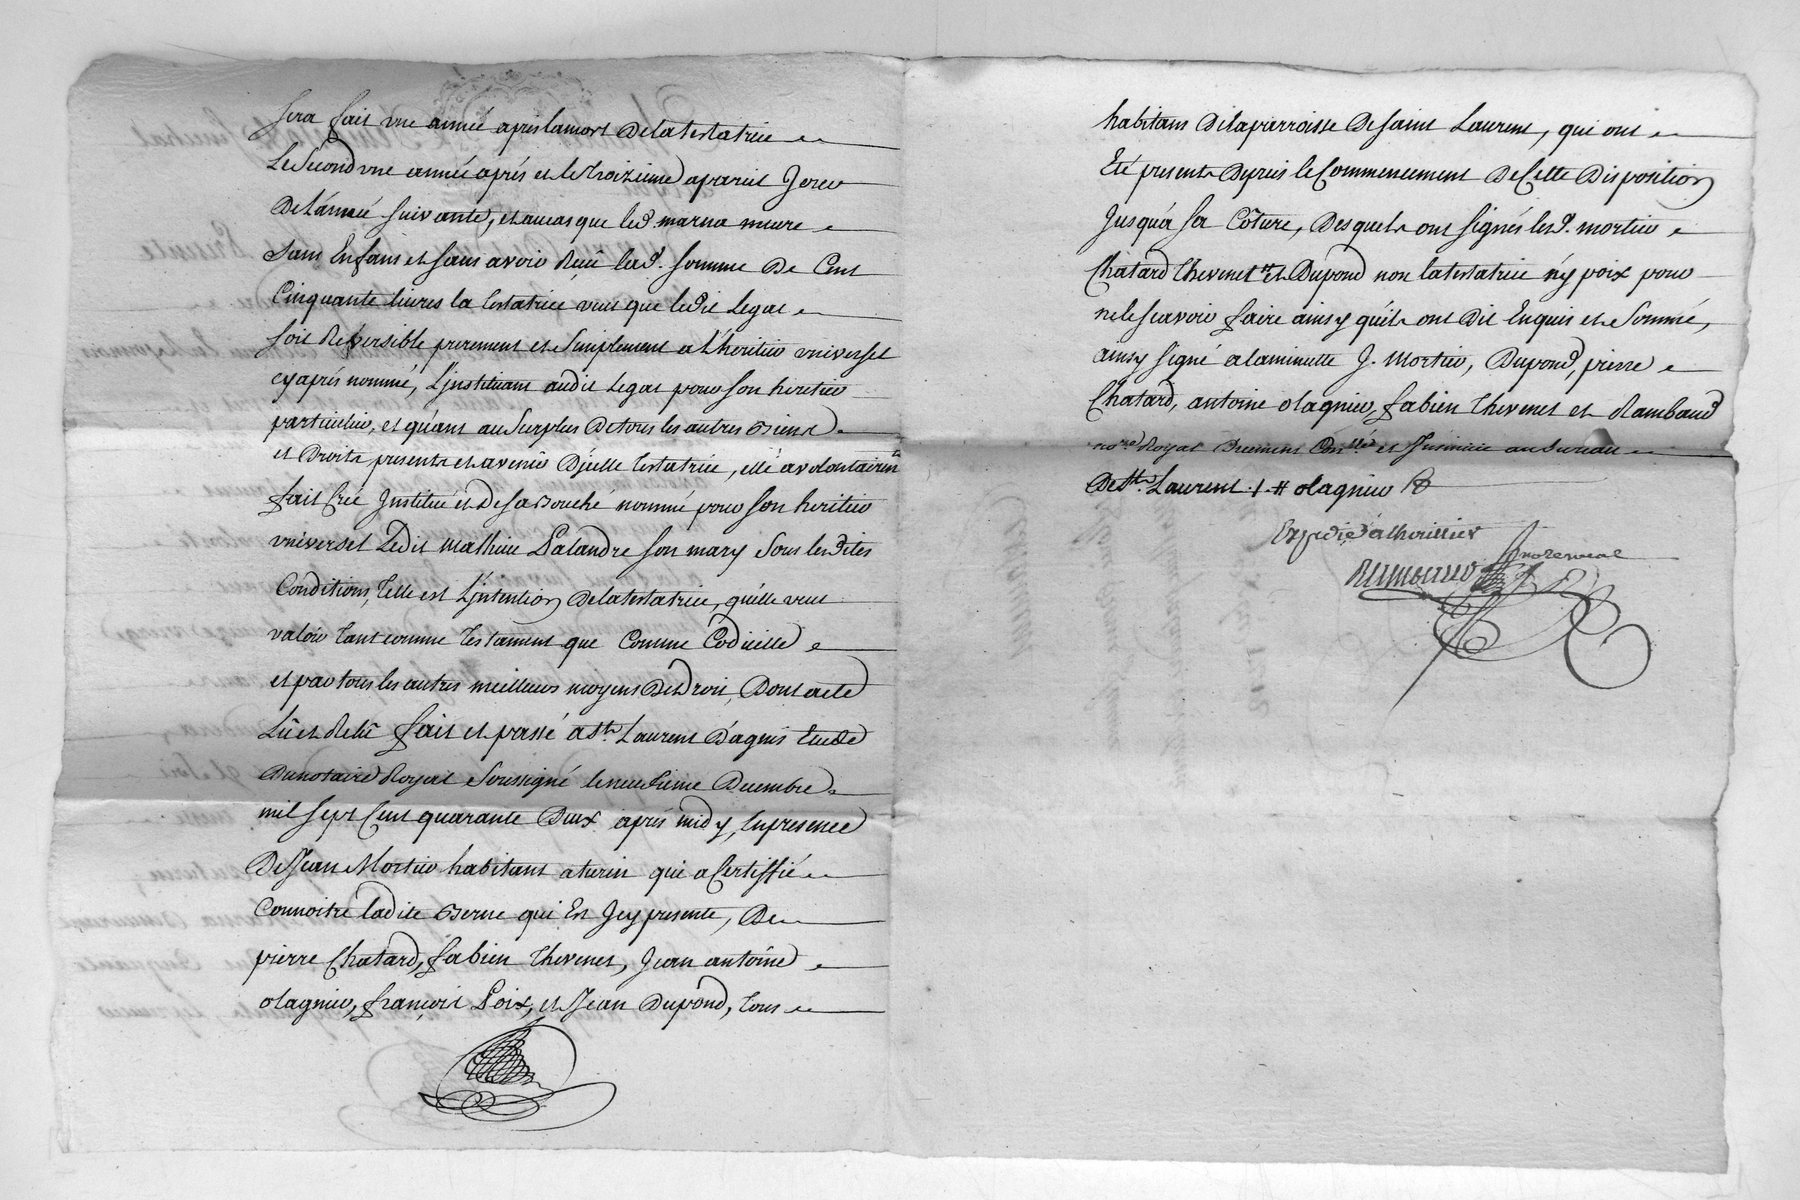 sera fait une année apres la mort de la testatrice
Le second une année aprés et le troizieme a pareil Jour
de l'année suivante, et au cas que led. marna meure
sans Enfans et sans avoir Reçu lad. somme de Cent
Cinquante livres la testatrice veut que ledit Legat
soit Reversible purement et simplement a l'heritier universel
cy aprés nommé, L'jnstituant audit Legat pour son heretier
particulier, et quant au surplus de tous les autres Biens
et Droits presents et a venir D'jcelle testatrice, elle a volontairemt
fait créé Jnstitué et de sa Bouche nommé pour son heritier
universel Ledit Mathieu Lalandre son mary sous lesdites
Conditions, telle est L'jntention de la testatrice, qu'elle veut
valoir tant comme testament que Comme Codicille
et par tous les autres meilleurs moyens de droit, Dont acte
Lû et Relû fait et passé a St. Laurent d'agnis Etude
du notaire Royal soussigné le neufvieme Decembre
mil sept Cent quarante deux aprés midy, En presence
de Jean Mortier habitant a turin qui a Certiffié
Connoitre ladite Berne qui Est Jcy presente, De
pierre Chatard, fabien thevenet, Jean antoine
olagnier, françois Loix, et Jean Dupond, tous
habitans de la parroisse de saint Laurent, qui ont
Eté presents depuis le Commencement de Cette Disposition
Jusqu'a sa Côture, desquels ont signés lesd. mortier
Chatard thevenet et Dupond non la testatrice n'y poix pour
ne le scavoir faire ainsy qu'ils ont dit Enquis et sommé,
ainsy signé a la minutte J. Mortier, Dupond, pierre
Chatard, antoine olagnier, fabien thevenet et Rambaud
nore Royal Duement Conllé et Jnsinué au bureau
de St. Laurent .1. # olagnier
Expedié a lheritier
Rambaud no re royal